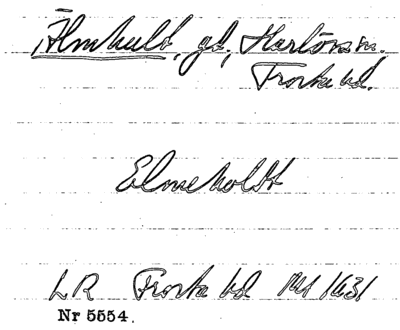 Älmhult, gd, Karlöns sn,
Frosta hd.
Elmeholdt
LR Frosta hd 1/4 1631
Nr 5554.